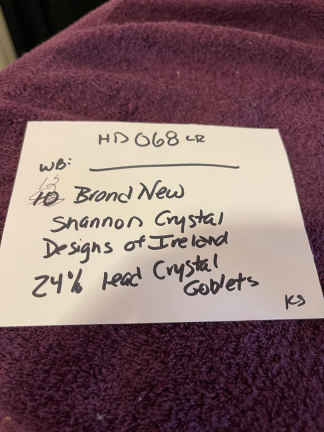 HD068 LR
WB:
10 Brand New
Shannon Crystal
Designs of Ireland
24% lead Crystal
Goblets
KS